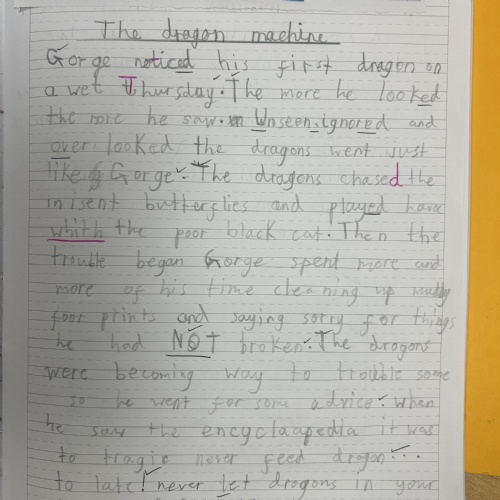 The dragon machine
Gorge noticed his first dragon on
a wet Thursday. The more he looked
the more he saw. Unseen, ignored and
over looked the dragons went just
like Gorge. The dragons chased the
inisent butterflies and played have
whith the poor black cat. Then the
trouble began Gorge spent more and
more of his time cleaning up muddy
foor prints and saying sorry for things
he had NOT broken. The dragons
were becoming way to trouble some
so he went for some advice. when
he saw the encyclaapedia it was
to tragic never feed dragon...
to late! never let dragons in your